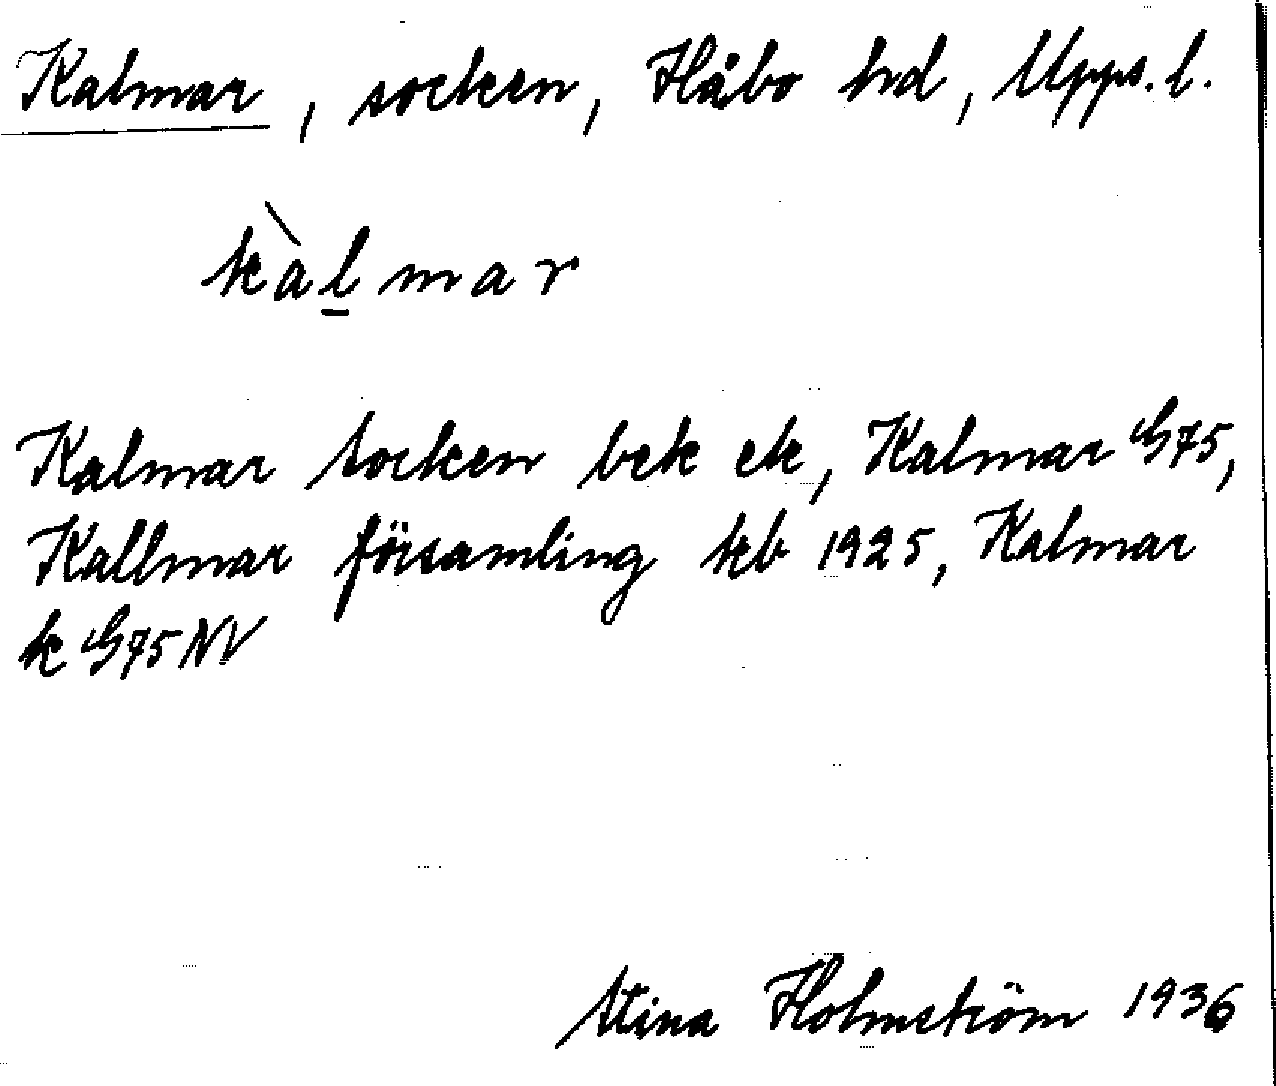 Kalmar, socken, Håbo hd, Upps. l.
kàl̲mar
Kalmar socken bek ek, Kalmar G75,
Kallmar församling kb 1925, Kalmar
k G75NV
Stina Holmström 1936